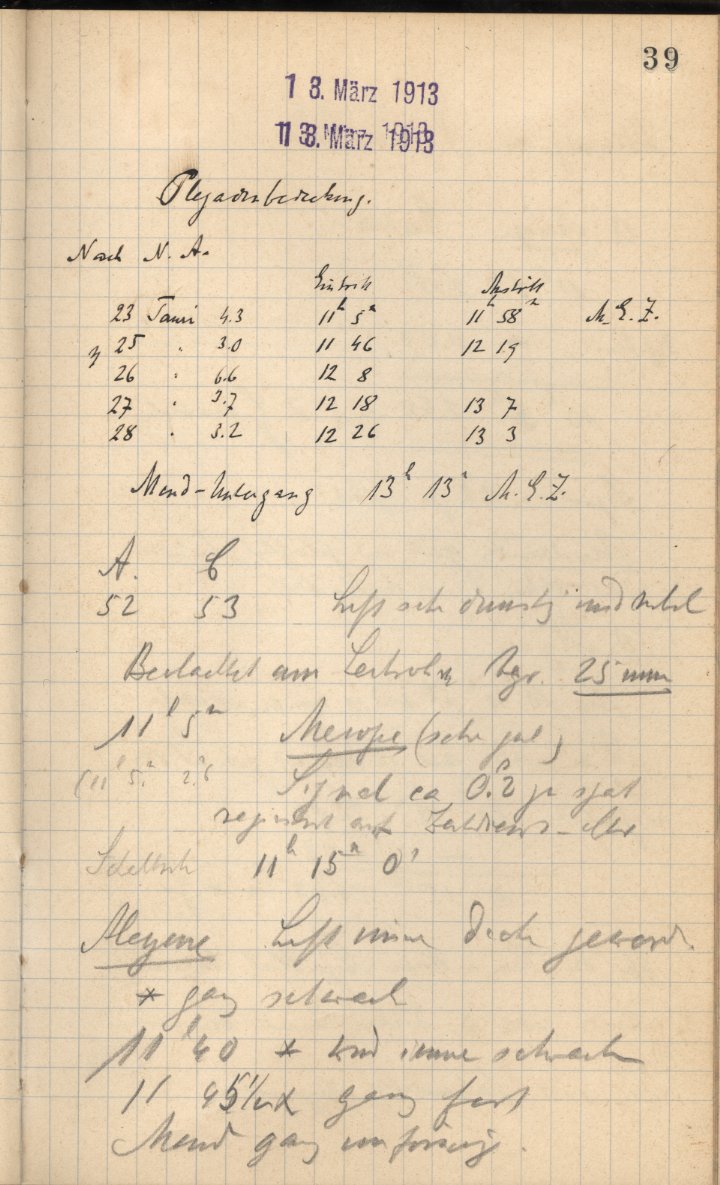 39
13. März 1913
13. März 1913
Plejadenbedeckung.
Nach N. A.
Eintritt Austritt
23 Tauri 4.3 11h 5m 11h 58m M. E. Z.
η 25 " 3.0 11 46 12 19
26 " 6.6 12 8
27 " 3.7 12 18 13 7
28 " 3.2 12 26 13 3
Mond-Untergang 13h 13m M. E. Z.
A. C
52 53 Luft sehr dunstig und
Beobachtet am 25 mm
11h 5m Merope (sehr gut)
(11h 5m 2s.6 Signal ca 0s.2 zu spät
registriert auf Uhr
11h 15m 0s
Alcyone Luft immer geword.
* ganz schwach
11h 40 * wird immer schwach
11 45 1/2 * ganz fort
Mond ganz unförmig.